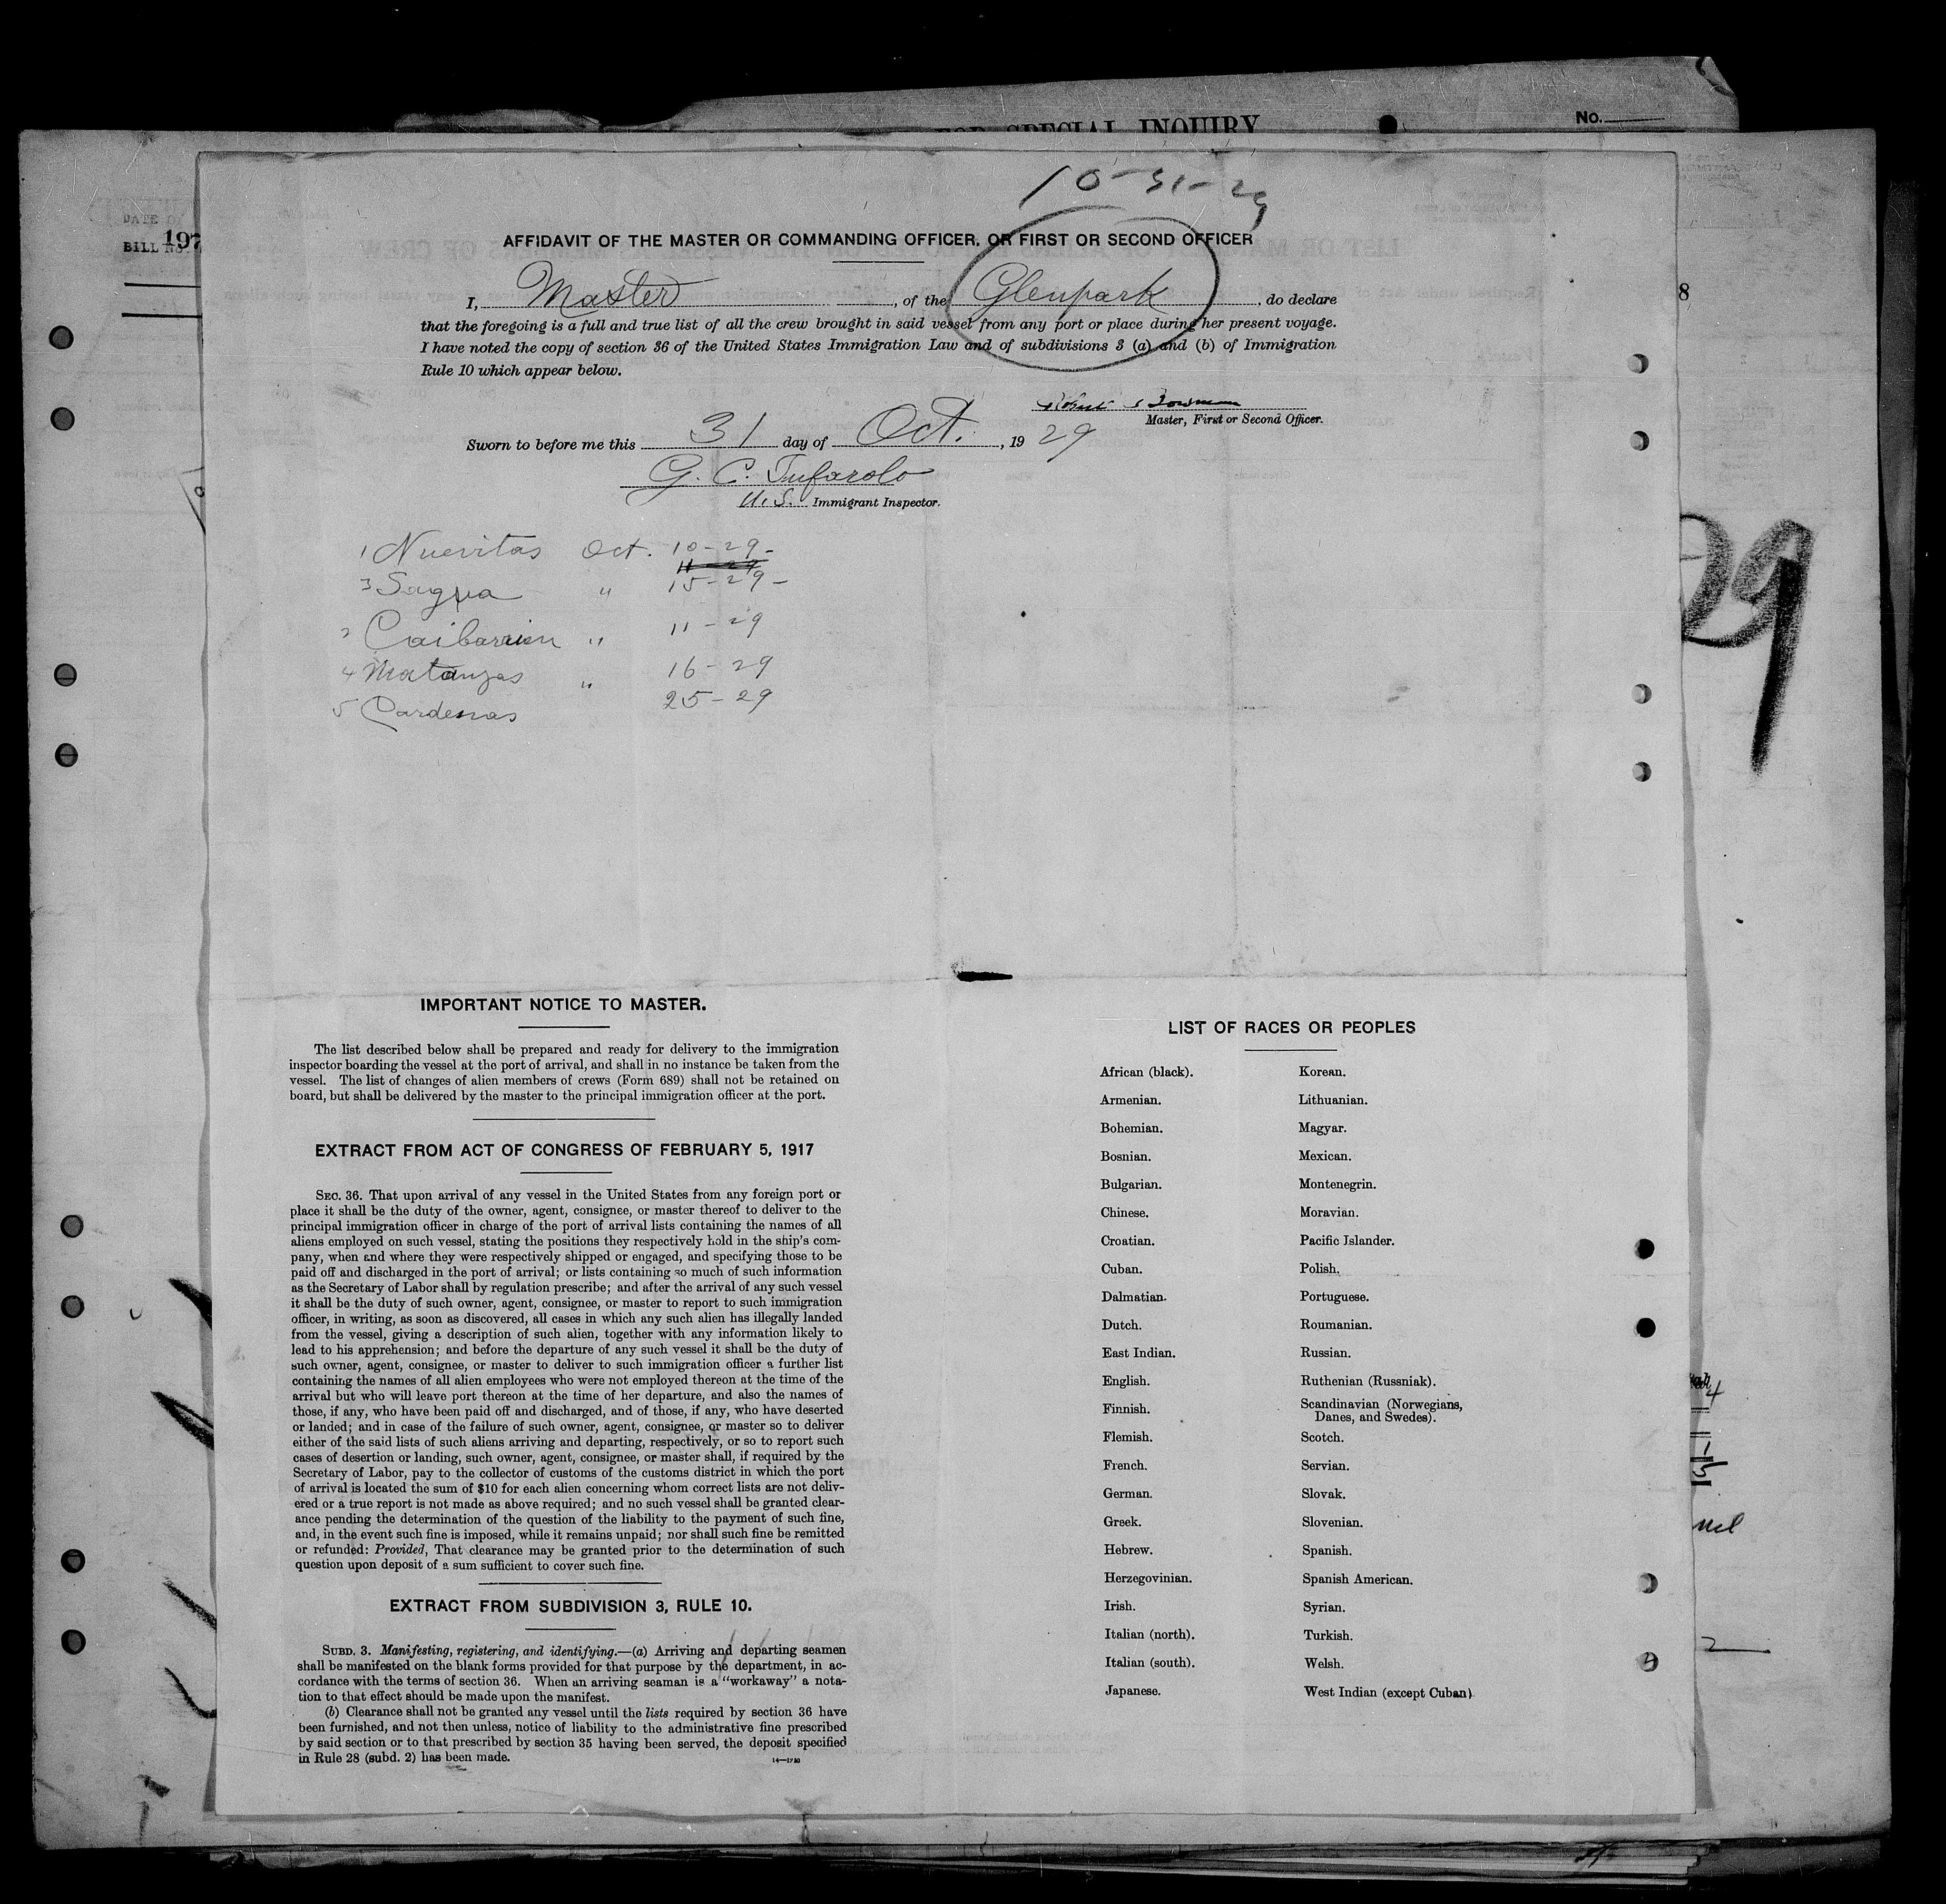 FOR SPECIAL INQUIRY
No.
10-31-29
DATE
BILL No. 197
8
AFFIDAVIT OF THE MASTER OR COMMANDING OFFICER, OR FIRST OR SECOND OFFICER
I, Master, of the Glenpark, do declare
that the foregoing is a full and true list of all the crew brought in said vessel from any port or place during her present voyage.
I have noted the copy of section 36 of the United States Immigration Law and of subdivisions 3 (a) and (b) of Immigration
Rule 10 which appear below.
Master, First or Second Officer.
Sworn to before me this 31 day of Oct., 1929
G. C. Tufarolo
U.S. Immigrant Inspector.
1 Nuevitas Oct. 10-29-
11-29
3 Sagua " 15-29-
2 Caibarien " 11-29
4 Matanzas " 16-29
5 Cardenas 25-29
29
IMPORTANT NOTICE TO MASTER.
The list described below shall be prepared and ready for delivery to the immigration
inspector boarding the vessel at the port of arrival, and shall in no instance be taken from the
vessel. The list of changes of alien members of crews (Form 689) shall not be retained on
board, but shall be delivered by the master to the principal immigration officer at the port.
EXTRACT FROM ACT OF CONGRESS OF FEBRUARY 5, 1917
SEC. 36. That upon arrival of any vessel in the United States from any foreign port or
place it shall be the duty of the owner, agent, consignee, or master thereof to deliver to the
principal immigration officer in charge of the port of arrival lists containing the names of all
aliens employed on such vessel, stating the positions they respectively hold in the ship's com-
pany, when and where they were respectively shipped or engaged, and specifying those to be
paid off and discharged in the port of arrival; or lists containing so much of such information
as the Secretary of Labor shall by regulation prescribe; and after the arrival of any such vessel
it shall be the duty of such owner, agent, consignee, or master to report to such immigration
officer, in writing, as soon as discovered, all cases in which any such alien has illegally landed
from the vessel, giving a description of such alien, together with any information likely to
lead to his apprehension; and before the departure of any such vessel it shall be the duty of
such owner, agent, consignee, or master to deliver to such immigration officer a further list
containing the names of all alien employees who were not employed thereon at the time of the
arrival but who will leave port thereon at the time of her departure, and also the names of
those, if any, who have been paid off and discharged, and of those, if any, who have deserted
or landed; and in case of the failure of such owner, agent, consignee, or master so to deliver
either of the said lists of such aliens arriving and departing, respectively, or so to report such
cases of desertion or landing, such owner, agent, consignee, or master shall, if required by the
Secretary of Labor, pay to the collector of customs of the customs district in which the port
of arrival is located the sum of $10 for each alien concerning whom correct lists are not deliv-
ered or a true report is not made as above required; and no such vessel shall be granted clear-
ance pending the determination of the question of the liability to the payment of such fine,
and, in the event such fine is imposed, while it remains unpaid; nor shall such fine be remitted
or refunded: Provided, That clearance may be granted prior to the determination of such
question upon deposit of a sum sufficient to cover such fine.
EXTRACT FROM SUBDIVISION 3, RULE 10.
SUBD. 3. Manifesting, registering, and identifying.—(a) Arriving and departing seamen
shall be manifested on the blank forms provided for that purpose by the department, in ac-
cordance with the terms of section 36. When an arriving seaman is a "workaway" a nota-
tion to that effect should be made upon the manifest.
(b) Clearance shall not be granted any vessel until the lists required by section 36 have
been furnished, and not then unless, notice of liability to the administrative fine prescribed
by said section or to that prescribed by section 35 having been served, the deposit specified
in Rule 28 (subd. 2) has been made.
LIST OF RACES OR PEOPLES
African (black).
Armenian.
Bohemian.
Bosnian.
Bulgarian.
Chinese.
Croatian.
Cuban.
Dalmatian.
Dutch.
East Indian.
English.
Finnish.
Flemish.
French.
German.
Greek.
Hebrew.
Herzegovinian.
Irish.
Italian (north).
Italian (south).
Japanese.
Korean.
Lithuanian.
Magyar.
Mexican.
Montenegrin.
Moravian.
Pacific Islander.
Polish.
Portuguese.
Roumanian.
Russian.
Ruthenian (Russniak).
Scandinavian (Norwegians,
Danes, and Swedes).
Scotch.
Servian.
Slovak.
Slovenian.
Spanish.
Spanish American.
Syrian.
Turkish.
Welsh.
West Indian (except Cuban)